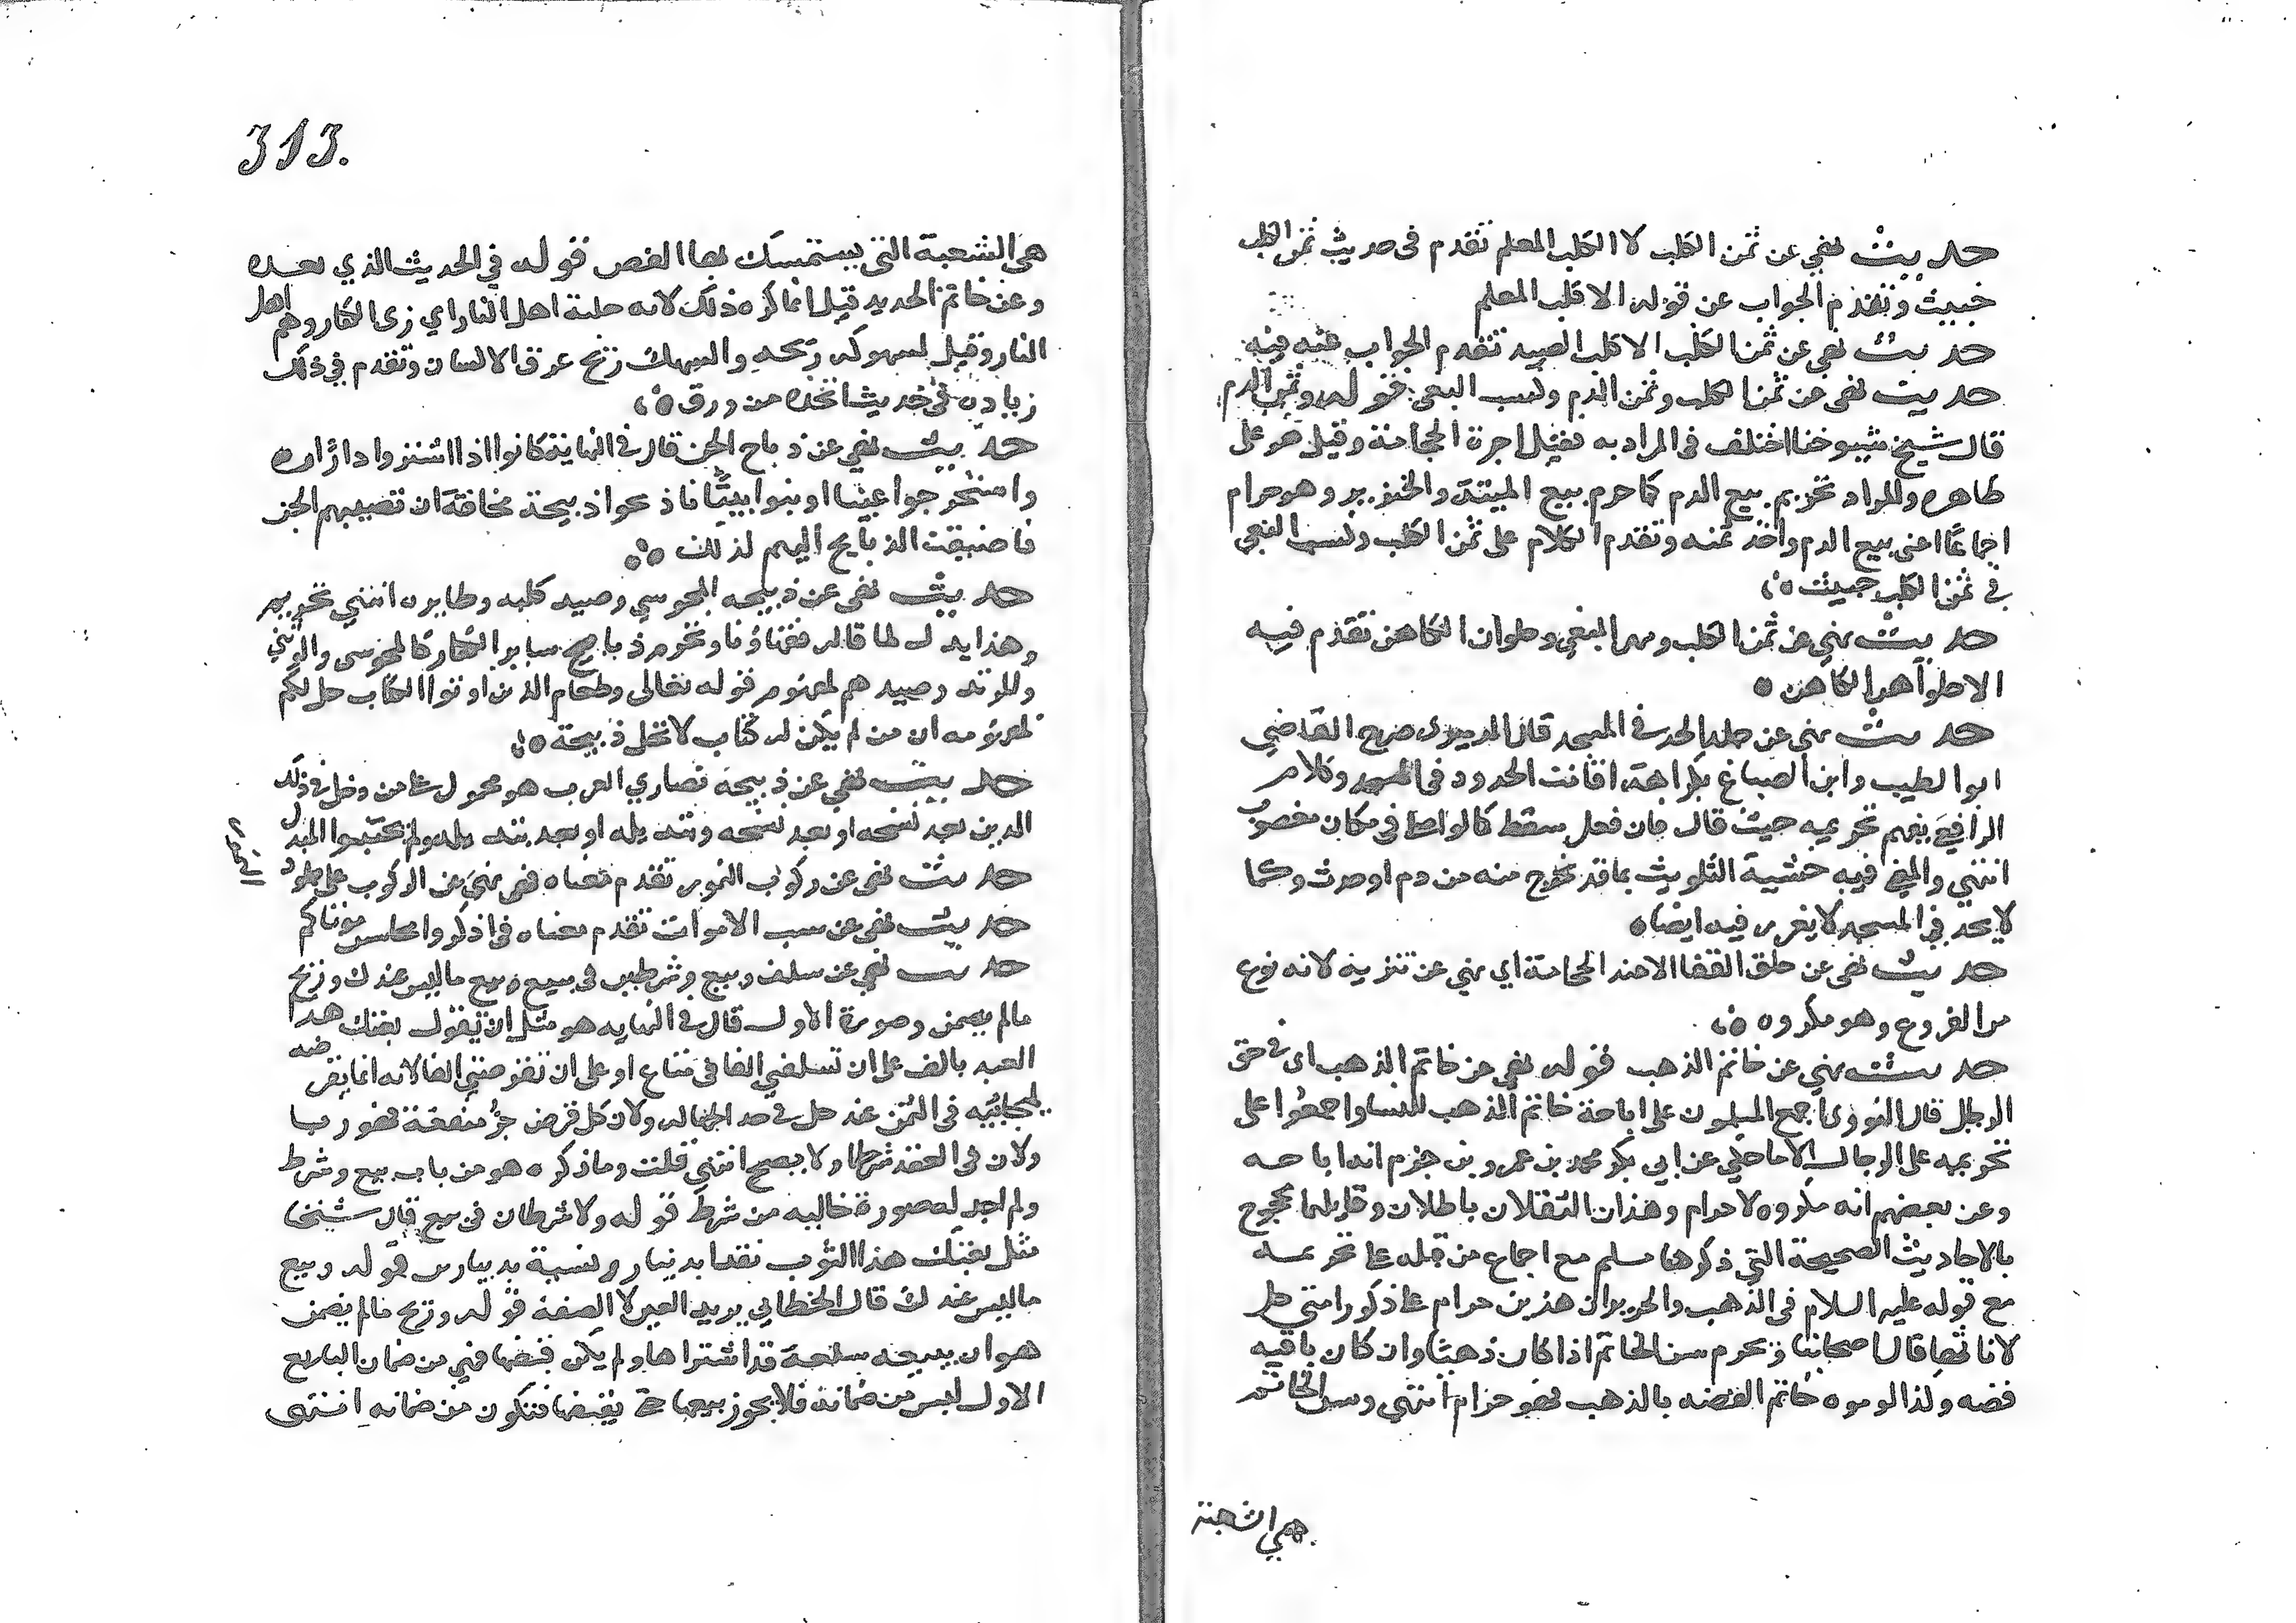 حديث نهي عن ثمن الكلب لا الكلب المعلم تقدم فى حديث ثمن الكلب
خبيث وتقدم الجواب عن قوله الا كلب المعلم
حديث نهي عن ثمن الكلب الا كلب الصيد تقدم الجواب عنه فيه
حديث نهى عن ثمن الكلب وثمن الدم وكسب البغي قوله وثمن الدم
قال شيخ شيوخنا اختلف فى المراد به فقيل اجرة الحجامة وقيل هو على
ظاهره والمراد تحريم بيع الدم كما حرم بيع الميتة والخنزير وهو حرام
اجماعًا اعنى بيع الدم واخذ ثمنه وتقدم الكلام على ثمن الكلب وكسب البغي
في ثمن الكلب خبيث ه
حديث نهي عن ثمن الكلب ومهر البغي وحلوان الكاهن تقدم فيه
الا حلوان الكاهن ه
حديث نهى عن جلد الحد في المسجد قال الدميري صرح القاضي
ابو الطيب وابن الصباغ بكراهة اقامت الحدود في المسجد وكلام
الرافعي يفهم تحريمه حيث قال فان فعل سقط كالواط فى مكان مغصوب
انتهي والمعنى فيه خشية التلويث بما قد يخرج منه من دم او حدث وكما
لا يحد في المسجد لا يعزر فيه ايضا ه
حديث نهى عن حلق القفا الا عند الحجامة اي نهي عن تنزيه لانه نوع
من القزوع وهو مكروه ه
حديث نهي عن خاتم الذهب قوله نهى عن خاتم الذهب اى في حق
الرجال قال النووى اجمع المسلمون على اباحة خاتم الذهب للنسا واجمعوا على
تحريمه على الرجال الا ما حكي عن ابي بكر محمد بن عمرو بن حزم انه اباحه
وعن بعضهم انه مكروه لا حرام وهذان النقلان باطلان وقايلهما محجوج
بالاحاديث الصحيحة التي ذكرها مسلم مع اجماع من قبله على تحريمه
مع قوله عليه السلام فى الذهب والحرير ان هذين حرام على ذكور امتي حل
لاناثها قال اصحابنا ويحرم سن الخاتم اذا كان ذهبا وان كان باقيه
فضه وكذا لو موه خاتم الفضه بالذهب فهو حرام انتهي وسن الخاتم
هي الشعبة
313.
هي الشعبة التى يستمسك بها الفص قوله في الحديث الذي بعده
وعن خاتم الحديد قيل انما كره ذلك لانه حلية اهل النار اي زى الكفار وهم اهل
النار وقيل لسهوكه ريحه والسهك ريح عرق الانسان وتقدم في ذلك
زيادة فى حديث اتخذه من ورق ه
حديث نهي عن ذباح الجن قال في النهاية كانوا اذا اشتروا دارًا
واستخرجوا عينا او بنوا بيتًا ذبحوا ذبيحة مخافة ان تصيبهم الجن
فاضيفت الذبايح اليهم لذلك ه
حديث نهى عن ذبيحه المجوسي وصيد كلبه وطايره انتهي تحريم
وهذا يدل لما قاله فقهاؤنا وتحرم ذبايح ساير الكفار كالمجوسى والوثني
والمرتد وصيدهم لمفهوم قوله تعالى وطعام الذين اوتوا الكتاب حل لكم
لمفهومه ان من لم يكن له كتاب لا تحل ذبيحة ه
حديث نهي عن ذبيحة نصاري العرب هو محمول على من دخل في ذلك
الدين بعد نسخه او بعد نسخه وتبديله او بعد تبديله ولم يجتنبوا المبدل
حديث نهى عن ركوب النمور تقدم معناه في نهي عن الركوب على جلود
النمور
حديث نهى عن سب الاموات تقدم معناه في اذكروا محاسن موتاكم
حديث نهي عن سلف وبيع وشرطين في بيع وبيع ما ليس عندك وربح
مالم يضمن وصورة الاول قال في النهايه هو مثل ان يقول بعتك هذا
العبد بالف على ان تسلفني الفا في متاع او على ان تقرضني الفا لانه انما يقرضه
ليحابيه في الثمن فيدخل في حد الجهاله ولان كل قرض جرّ منفعة فهو ربا
ولان في العقد شرطا ولا يصح انتهي قلت وما ذكره هو من باب بيع وشرط
ولم اجد له صورة خاليه من شرط قوله ولا شرطان فى بيع قال شيخنا
مثل بعتك هذا الثوب نقدا بدينار ونسية بدينارين قوله وبيع
ما ليس عندك قال الخطابي يريد العين لا الصفة قوله وربح مالم يضمن
هو ان يبيعه سلعة قد اشتراها ولم يكن قبضها فهي من ضمان البايع
الاول ليس من ضمانه فلا يجوز بيعها حتى يقبضها فتكون من ضمانه انتهى